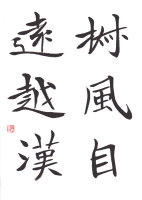 樹風自
遠越漢